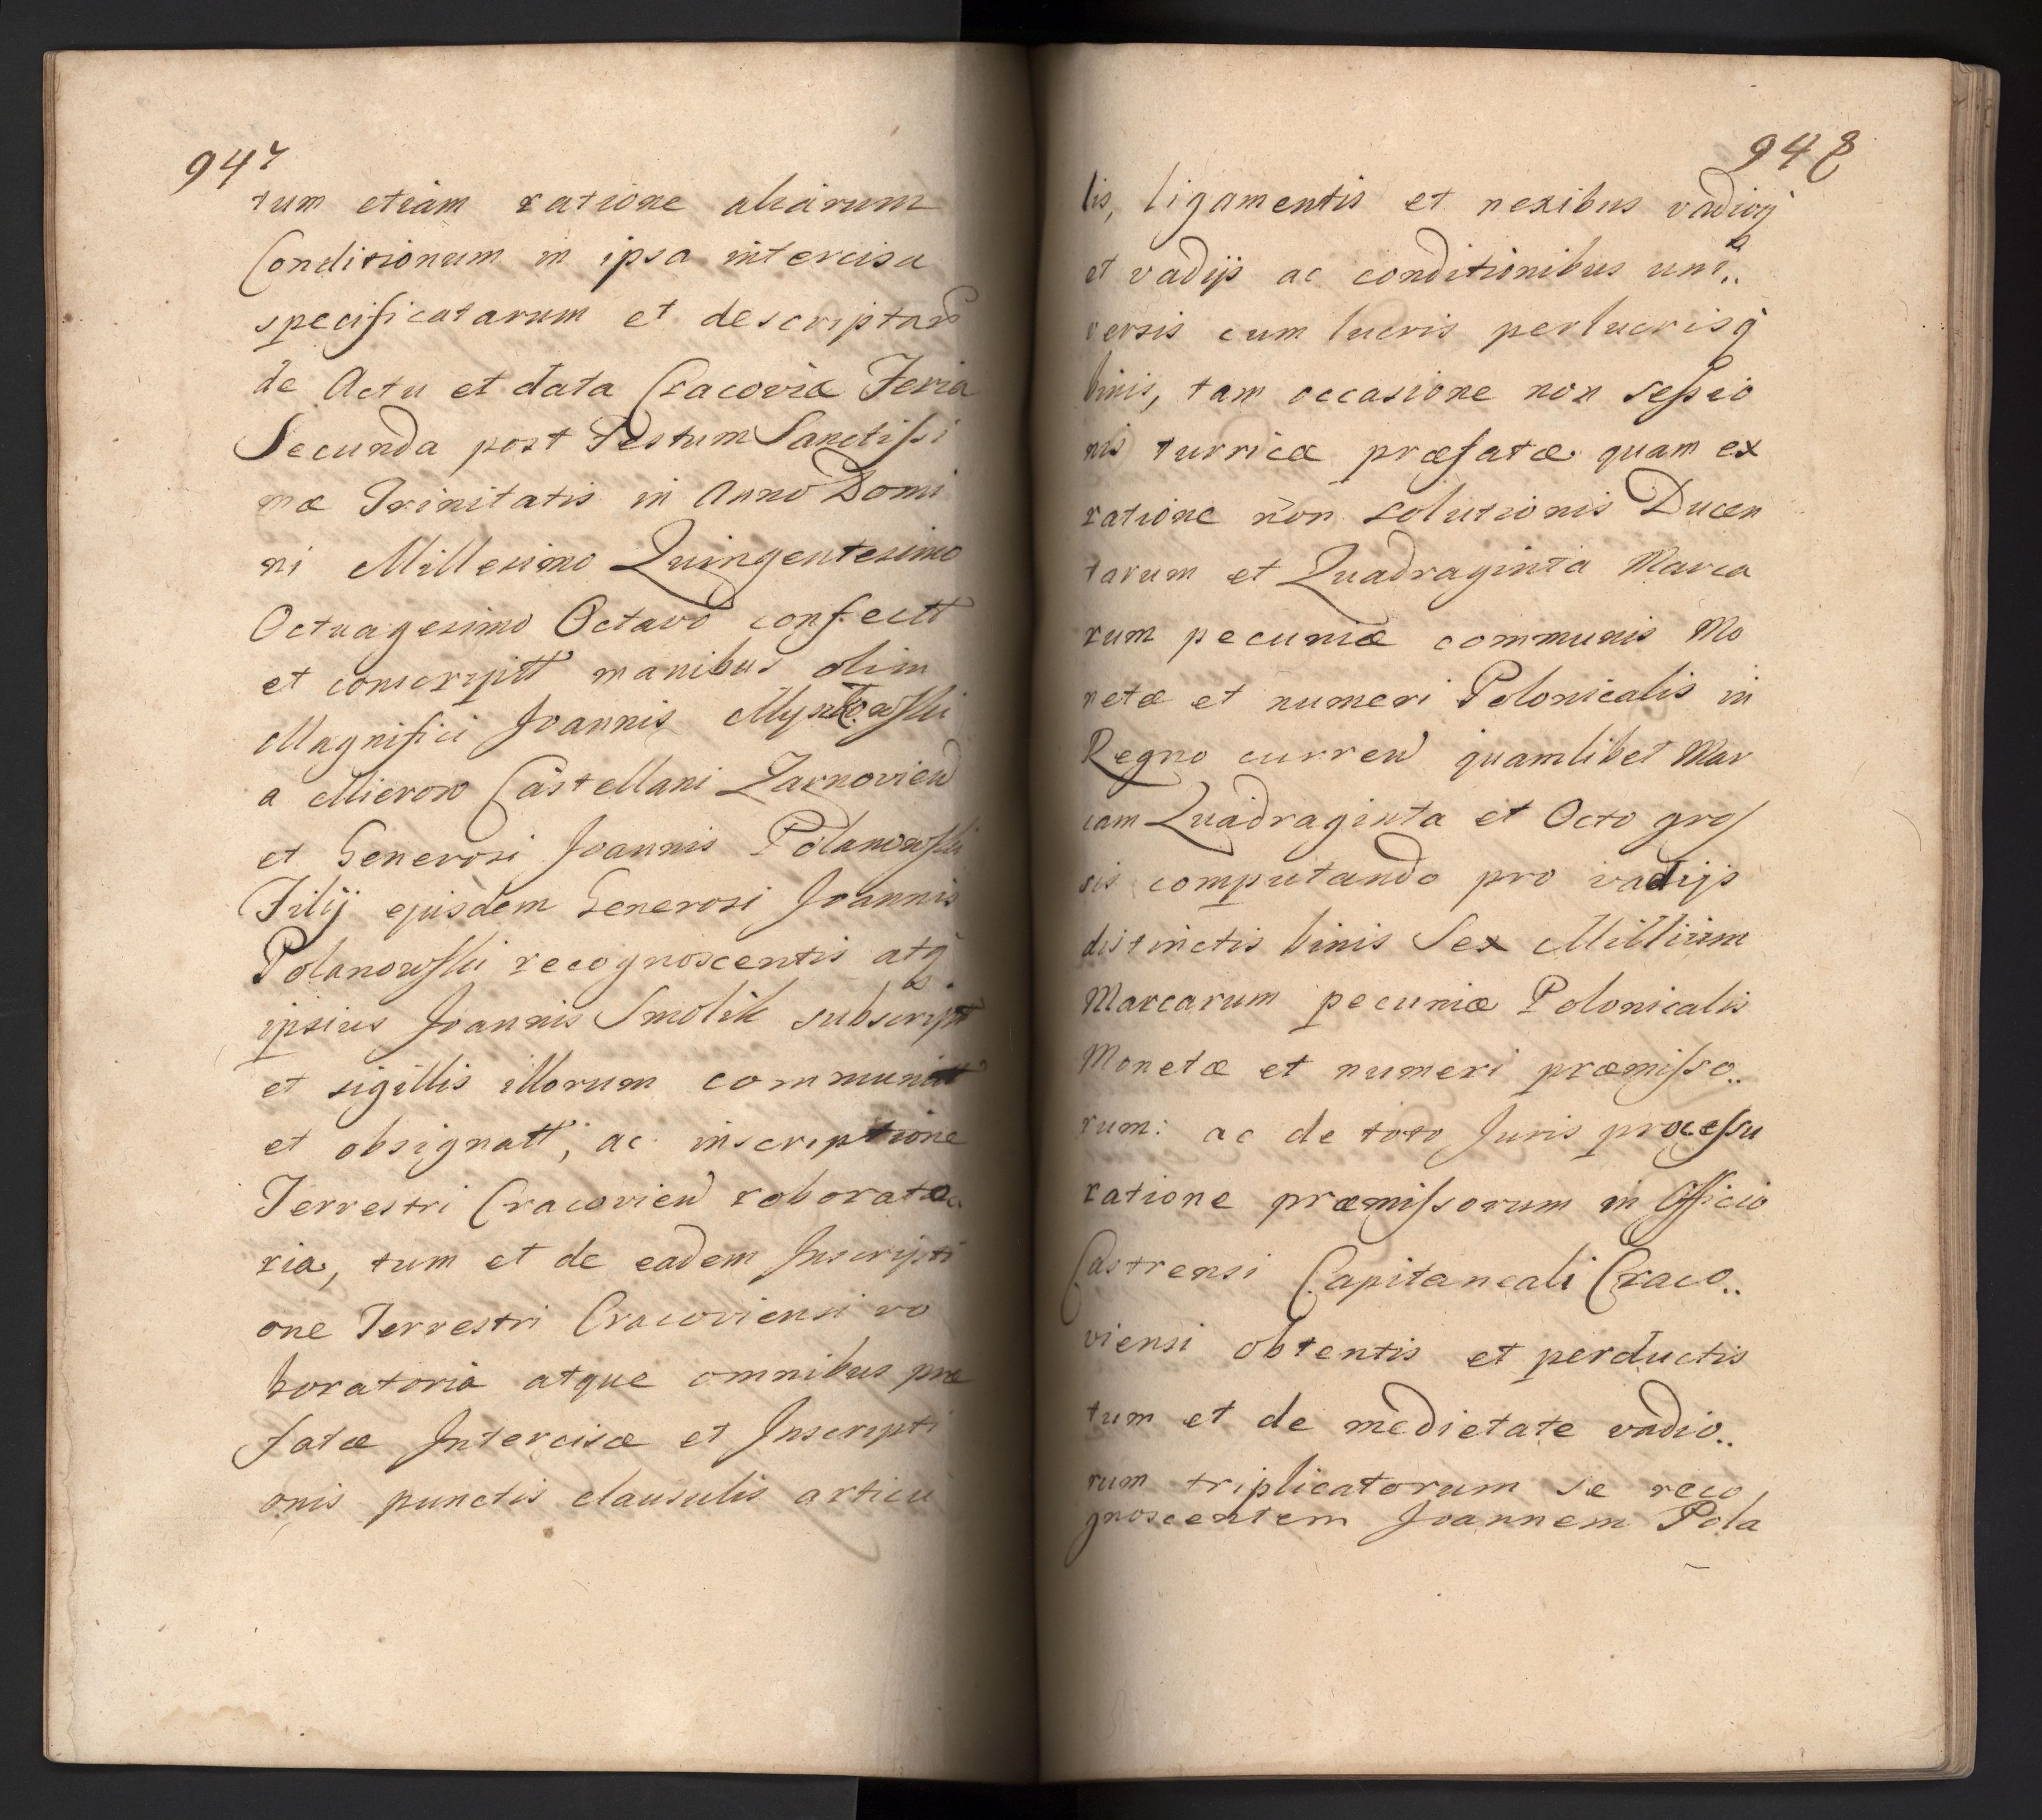 947
tum etiam ratione aliarum
Conditionum in ipsa intercisa
specificatarum et descriptar
de Actu et data Cracoviæ Feria
Secunda post Festum Sanctissi
mæ Trinitatis in Anno Domi
ni Millesimo Quingentesimo
Octuagesimo Octavo confectt
et conscriptt manibus olim
Magnifici Joannis
a Mierow Castellani Zarnovien
et Generosi Joannis Polanowski
Filij ejusdem Generosi Joannis
Polanowski recognoscentis atq
ipsius Joannis Smolik subscript
et sigillis illorum communitt
et obsignatt, ac inscriptione
Terrestri Cracovien roborato
ria, tum et de eadem Inscripti
one Terrestri Cracoviensi ro
boratoria atque omnibus præ
fatæ Intercisæ et Inscripti
onis punctis clausulis articu
948
lis, ligamentis et nexibus vadioq
et vadijs ac conditionibus uni..
versis cum lucris perlucrisq
binis, tam occasione non sessio
nis turricæ præfatæ quam ex
ratione non solutionis Ducen
tarum et Quadraginta Marca
rum pecuniæ communis Mo
netæ et numeri Polonicalis in
Regno curren quamlibet Mar
cam Quadraginta et Octo gros
sis computando pro vadijs
distinctis binis Sex Millium
Marcarum pecuniæ Polonicalis
Monetæ et numeri præmisso..
rum: ac de toto Juris processu
ratione præmissorum in Officio
Castrensi Capitaneali Craco..
viensi obtentis et perductis
tum et de medietate vadio..
rum triplicatorum se reco
gnoscentem Joannem Pola